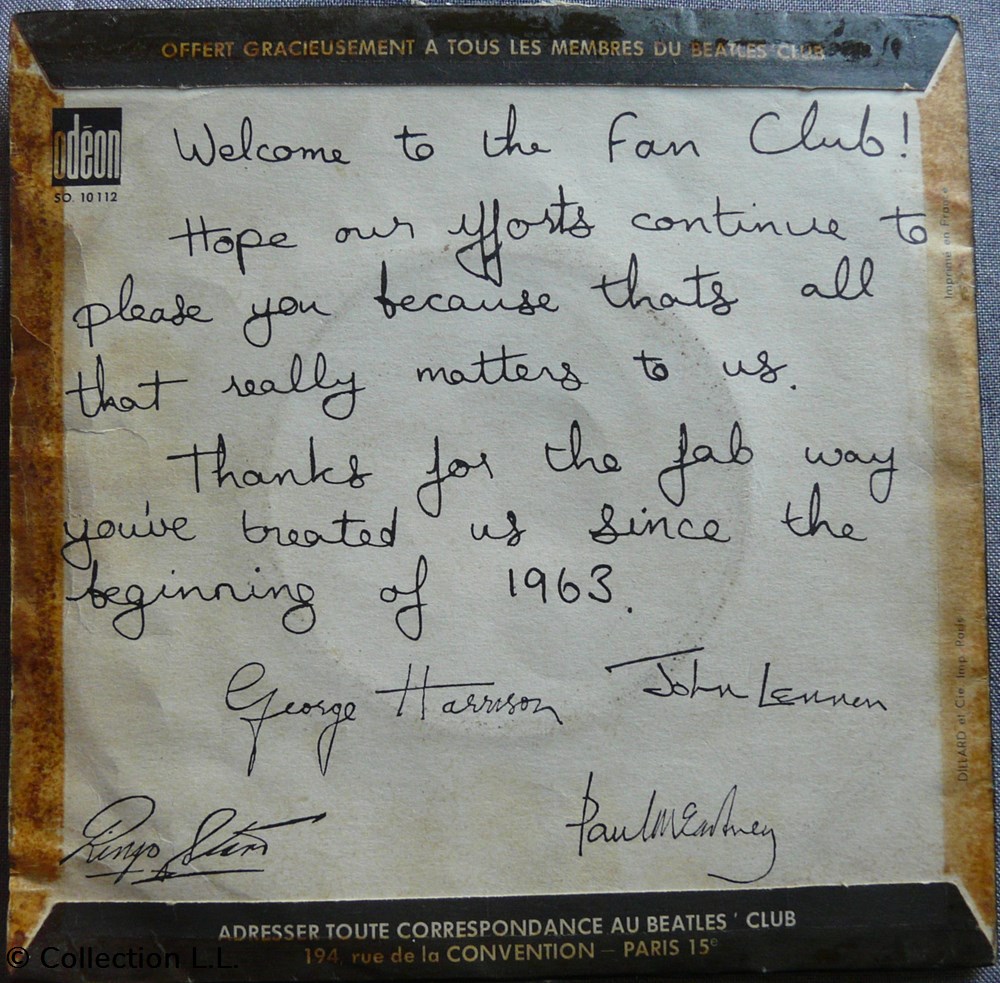 OFFERT GRACIEUSEMENT A TOUS LES MEMBRES DU BEATLES CLUB
odéon
SO. 10112
Welcome to the Fan Club!
Hope our efforts continue to
please you because thats all
that really matters to us.
Thanks for the fab way
you've treated us since the
beginning of 1963.
George Harrison John Lennon
Ringo Starr Paul McCartney
Imprimé en France
DILLARD et Cie Imp. Paris
ADRESSER TOUTE CORRESPONDANCE AU BEATLES' CLUB
194, rue de la CONVENTION — PARIS 15e
© Collection L.L.